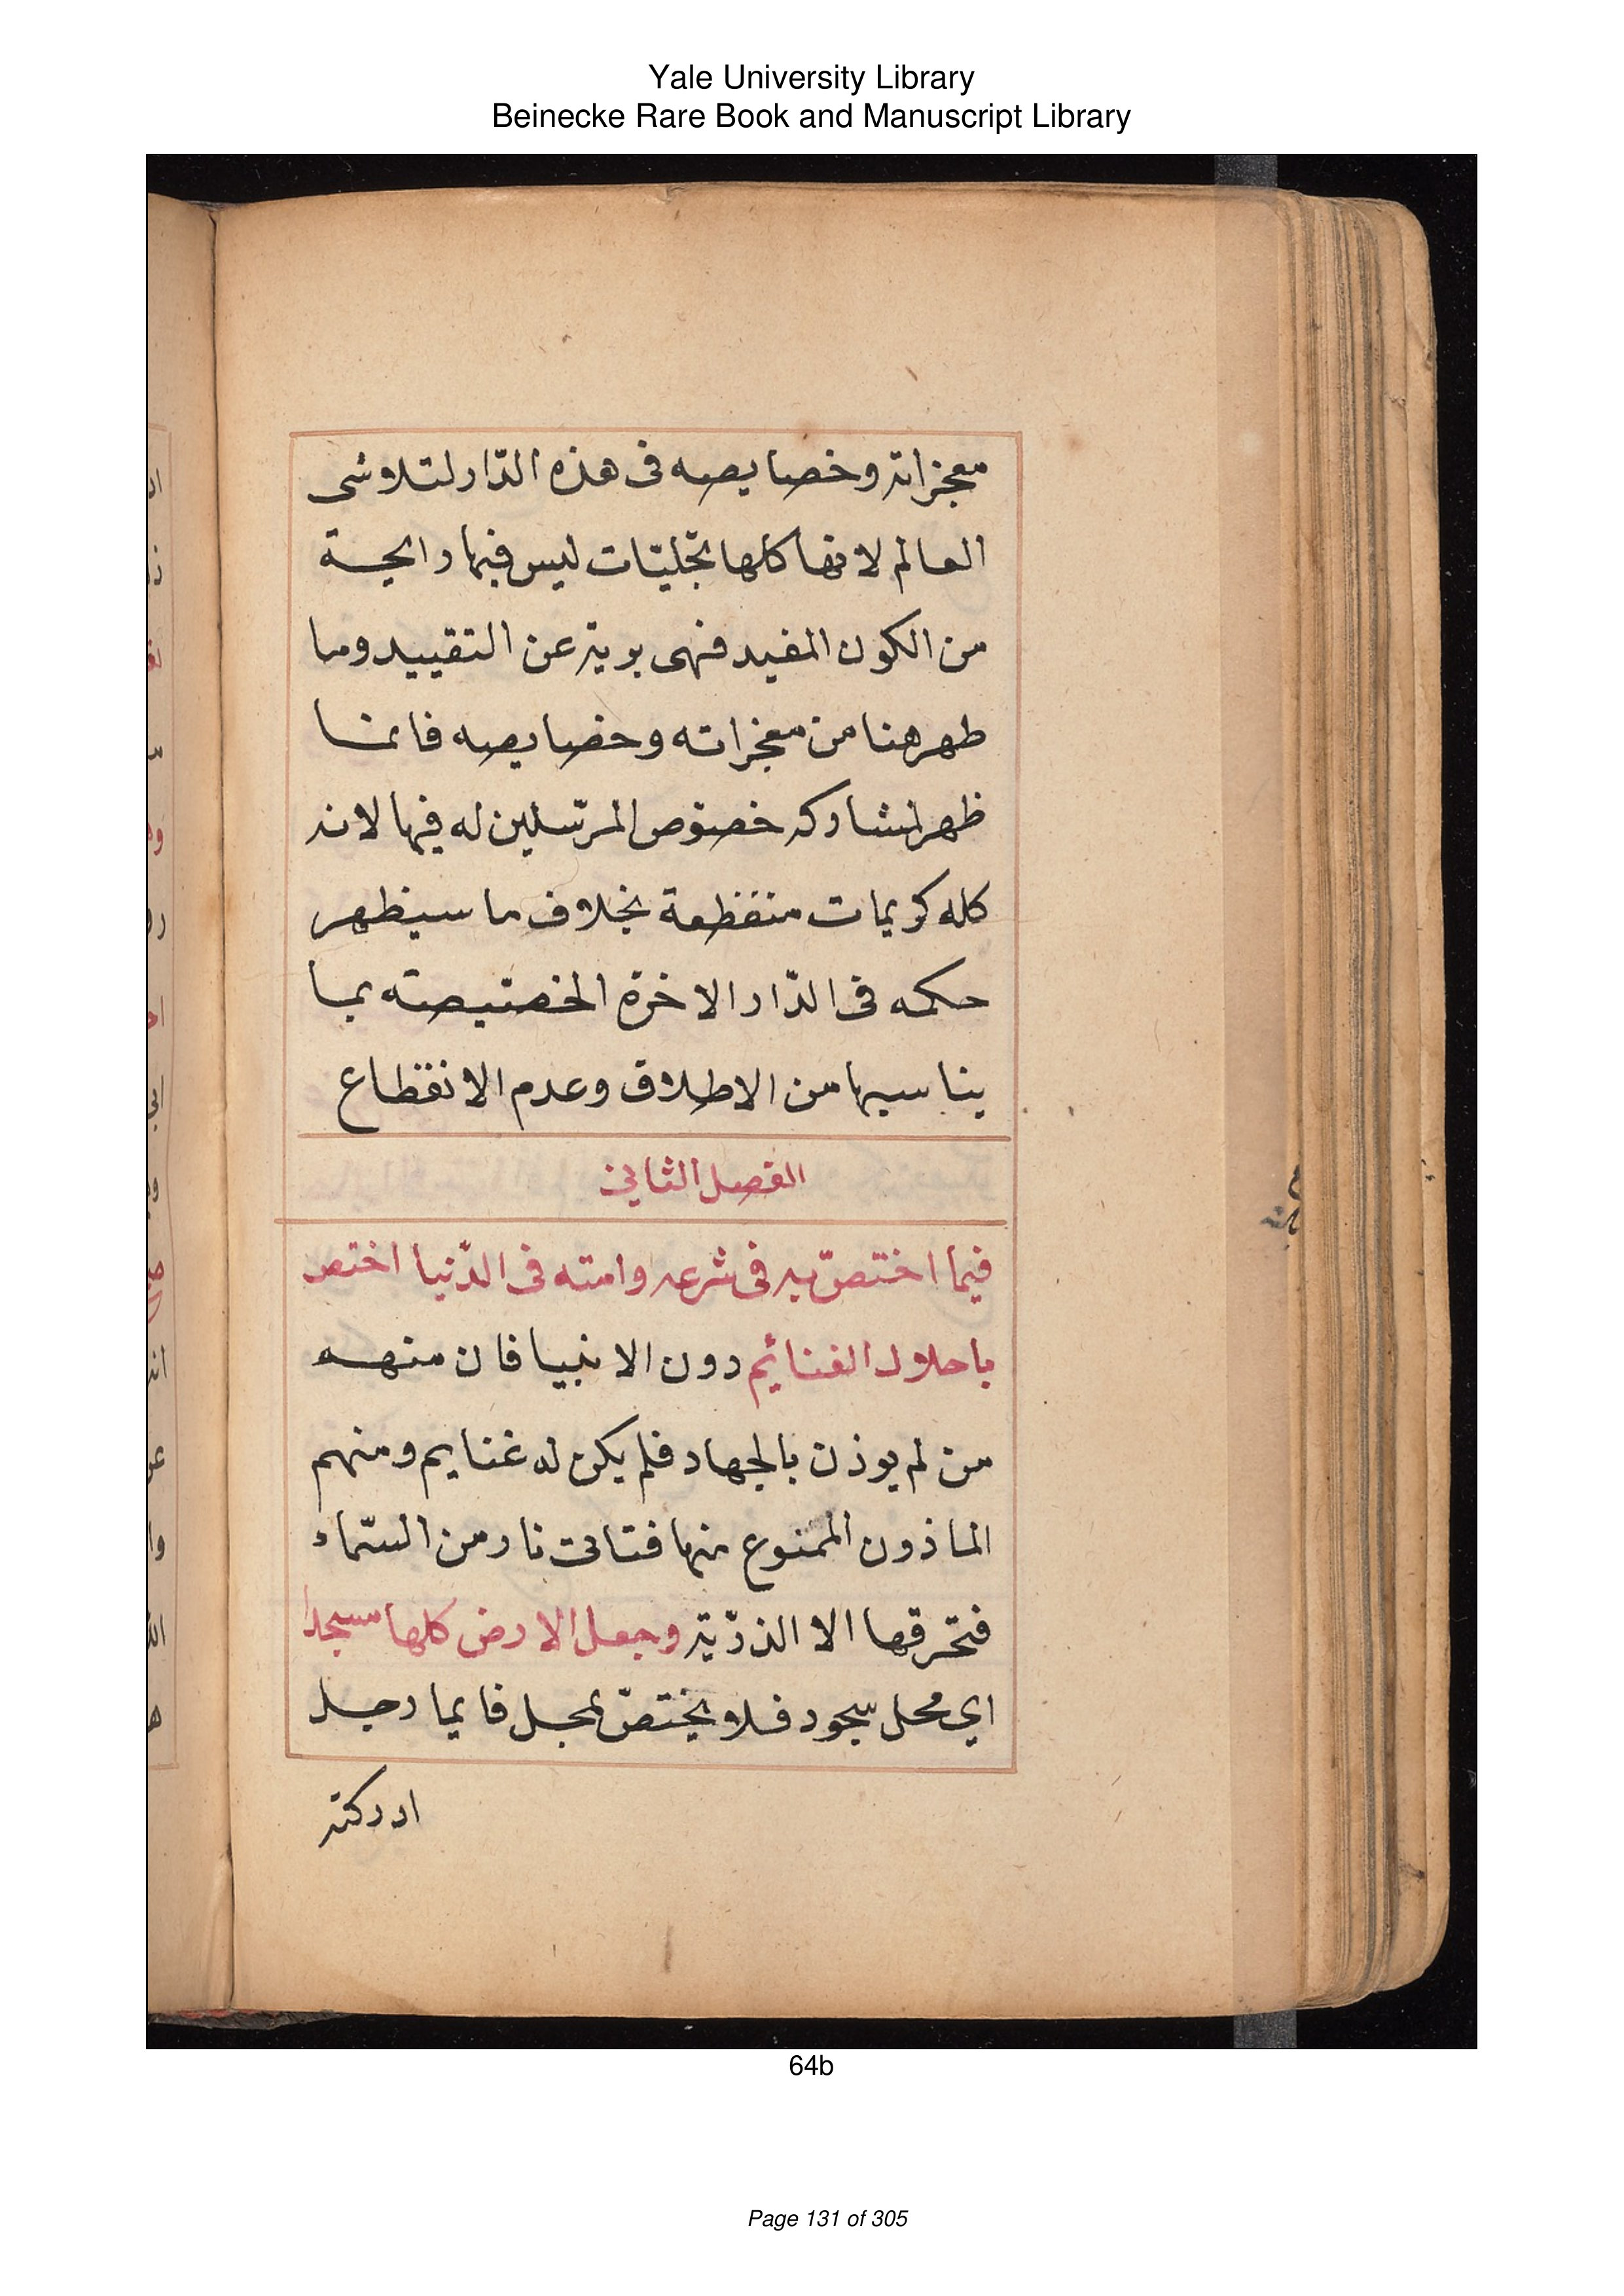 Yale University Library
Beinecke Rare Book and Manuscript Library
معجزاته وخصايصه فى هذه الدّار لتلاوشى
العالم لانها كلها تجّليّات ليس فيها رايحة
من الكون المفيد فهى برية عن التقييد وما
طهر هنا من معجزاته وخصايصه فانما
ظهر لمشاركه خصوّص المرسّلين له فيها لانه
كله كريمات منقطعة بخلاف ما سيظهر
حكمه فى الدّار الاخرة الخصتيصته بما
يناسبها من الاطلاق وعدم الانقطاع
الفصل الثاني
فيما اختصّ به فى شرعه وامته فى الدّنيا اختص
باحلال الغنائيم دون الانبيا فان منهه
من لم يوذن بالجهاد فلم يكن له غنايم ومنهم
الماذون الممنوع منها فتاتى نار من السّماء
فتحرقها الا الذرّيّة وجعل الارض كلها مسجدا
اي محل سجود فلا يختصّ بمحل فايما رجل
ادركته
64b
Page 131 of 305